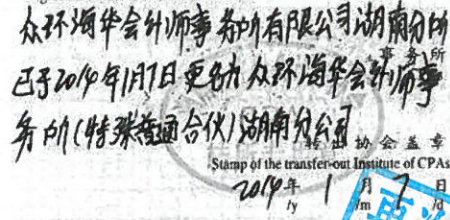 众环海华会计师事务所有限公司湖南分所
事务所
已于2014年1月7日更名为众环海华会计师事
务所(特殊普通合伙)湖南分公司
转出协会盖章
Stamp of the transfer-out Institute of CPAs
2014年 1 月 7 日
/y /m /d